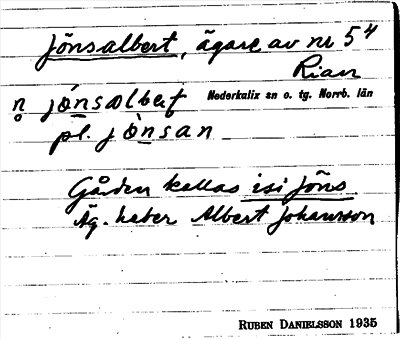 Jönsalbert, ägare av nr 5⁴
Rian
n̥ jònsalbert Nederkalix sn o. tg. Norrb. län
pl. jònsan
Gården kallas isi Jöns
Äg. heter Albert Johansson
RUBEN DANIELSSON 1935